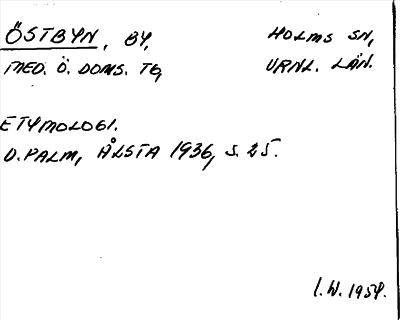 ÖSTBYN, BY, HOLMS SN,
MED. Ö. DOMS. TG, VRNL. LÄN.
ETYMOLOGI.
D. PALM, ÅLSTA 1936, S. 25.
I.W. 1954.